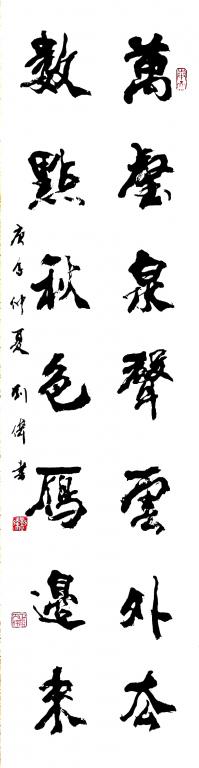 萬壑泉聲雲外去
數點秋色雁邊來
庚子仲夏 劉偉書